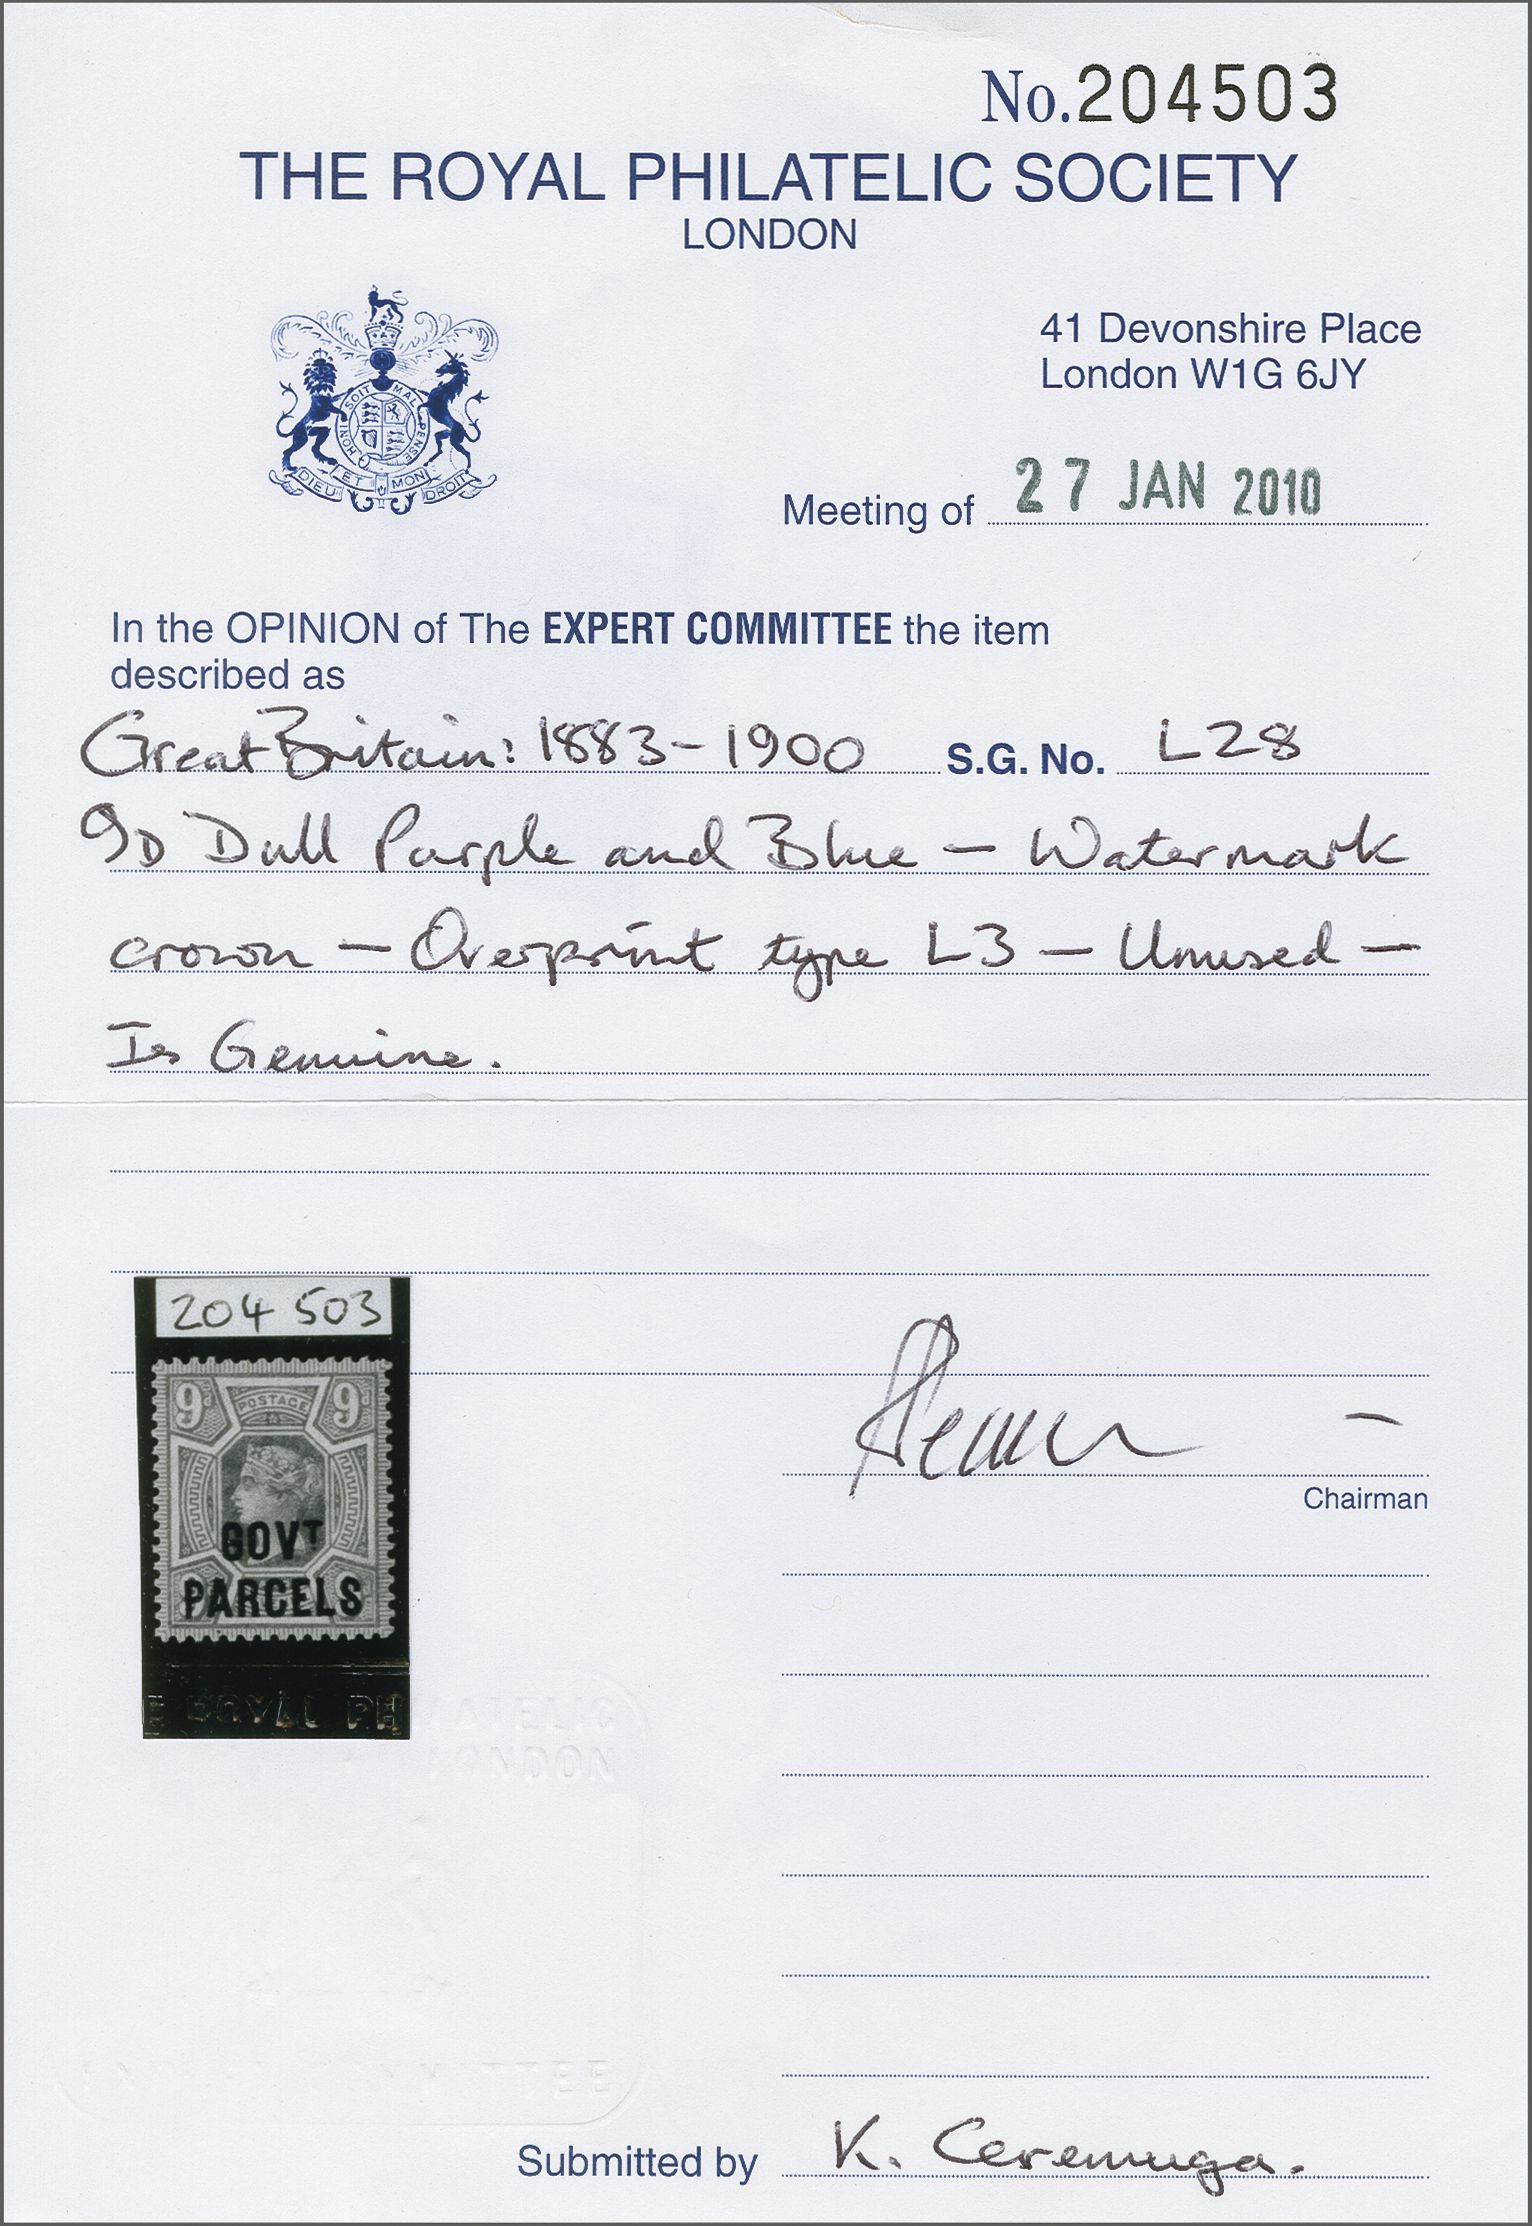 No.204503
THE ROYAL PHILATELIC SOCIETY
LONDON
HONI SOIT MAL PENSE
DIEU ET MON DROIT
41 Devonshire Place
London W1G 6JY
Meeting of 27 JAN 2010
In the OPINION of The EXPERT COMMITTEE the item
described as
Great Britain: 1883-1900 S.G. No. L28
9D Dull Purple and Blue — Watermark
crown — Overprint type L3 — Unused —
Is Genuine.
204 503
9d POSTAGE 9d
GOVT
PARCELS
Chairman
E ROYAL PHILATELIC
LONDON
Submitted by K. Ceremuga.